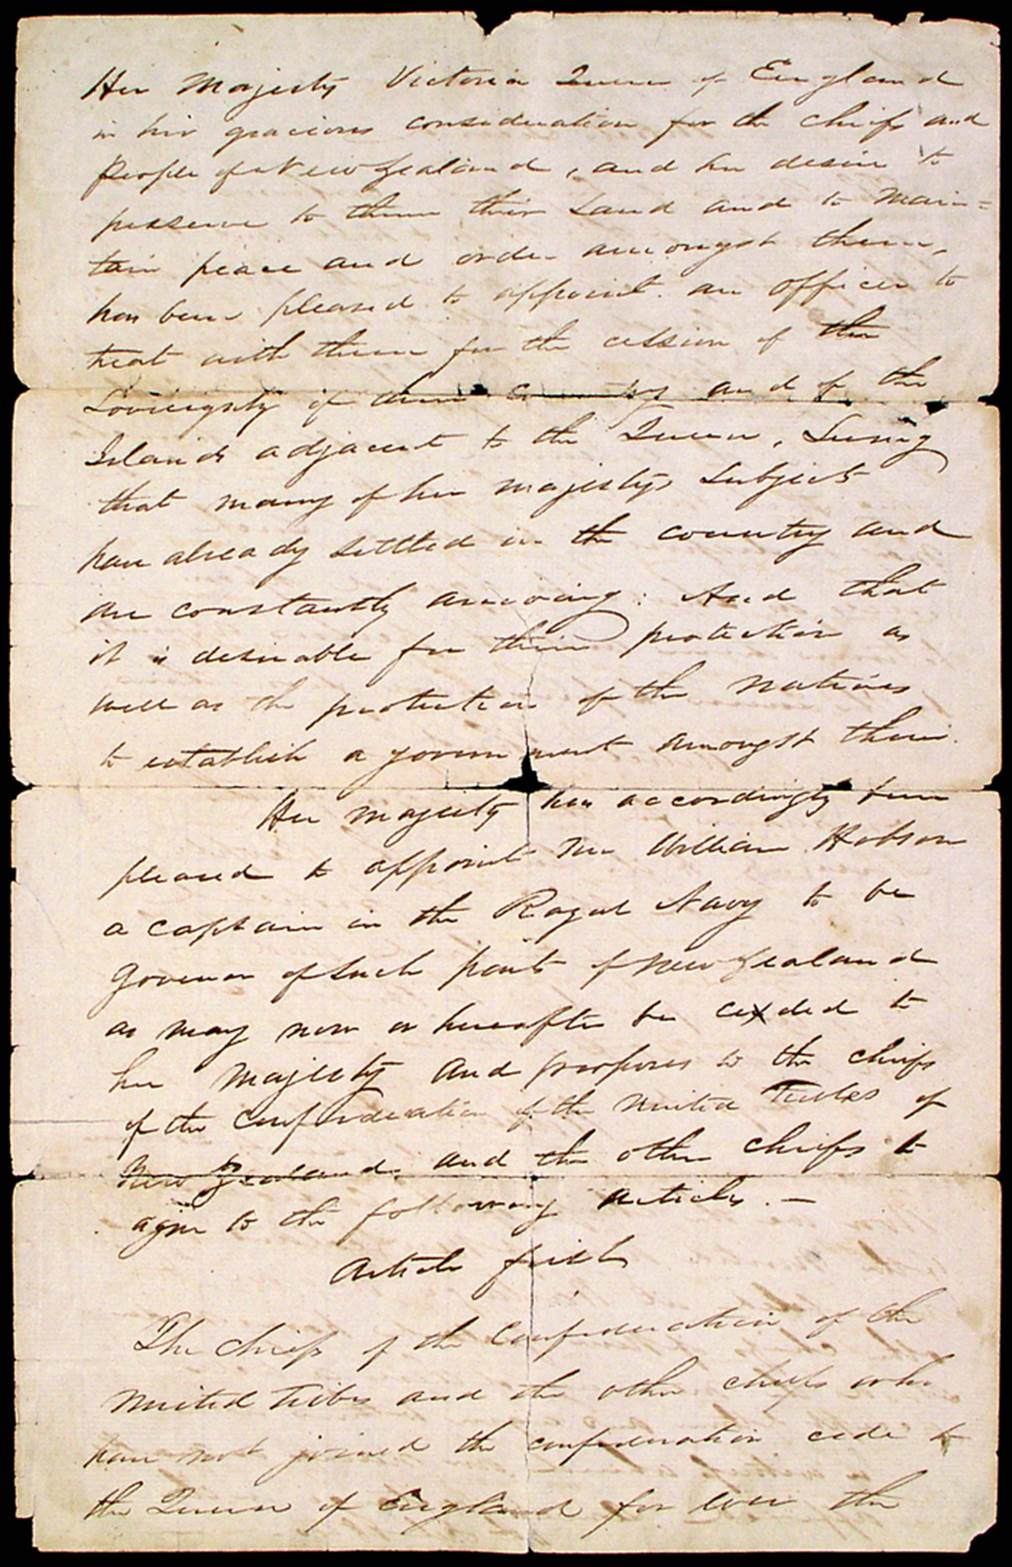 Her Majesty Victoria Queen of England
in her gracious consideration for the chiefs and
People of New Zealand, and her desire to
preserve to them their Land and to Main=
tain peace and order amongst them,
has been pleased to appoint an officer to
treat with them for the cession of the
Sovreignty of their country and of the
Islands adjacent to the Queen, Seeing
that many of her Majesty's Subjects
have already settled in the country and
are constantly arriving: And that
it is desirable for their protection as
well as the protection of the natives
to establish a government amongst them.
Her Majesty has accordingly been
pleased to appoint Mr William Hobson
a captain in the Royal Navy to be
Governor of such parts of New Zealand
as may now or hereafter be ceded to
her Majesty and proposes to the chiefs
of the Confederation of the United Tribes of
New Zealand and the other chiefs to
agree to the following articles. —
Article first
The chiefs of the Confederation of the
United Tribes and the other chiefs who
have not joined the confederation cede to
the Queen of England for ever the